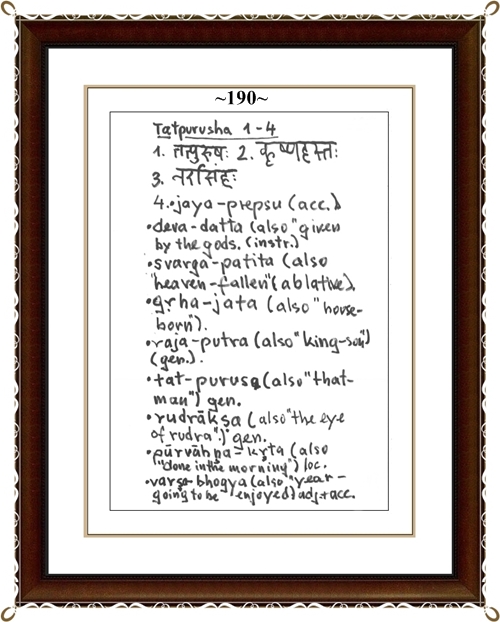 ~190~
Tatpurusha 1-4
1. तत्पुरुषः 2. कृष्णहस्तः
3. नरसिंहः
4. •jaya-prepsu (acc.)
•deva-datta (also "given
by the gods. (instr.)
•svarga-patita (also
"heaven-fallen"(ablative).
•gṛha-jata (also "house-
born").
•raja-putra (also "king-son")
(gen.).
•tat-purusa (also "that-
man") gen.
•rudrākṣa (also "the eye
of rudra".) gen.
•pūrvāhṇa-kṛta (also
("done in the morning") loc.
•varṣa-bhogya (also "year-
going to be enjoyed") adj+acc.